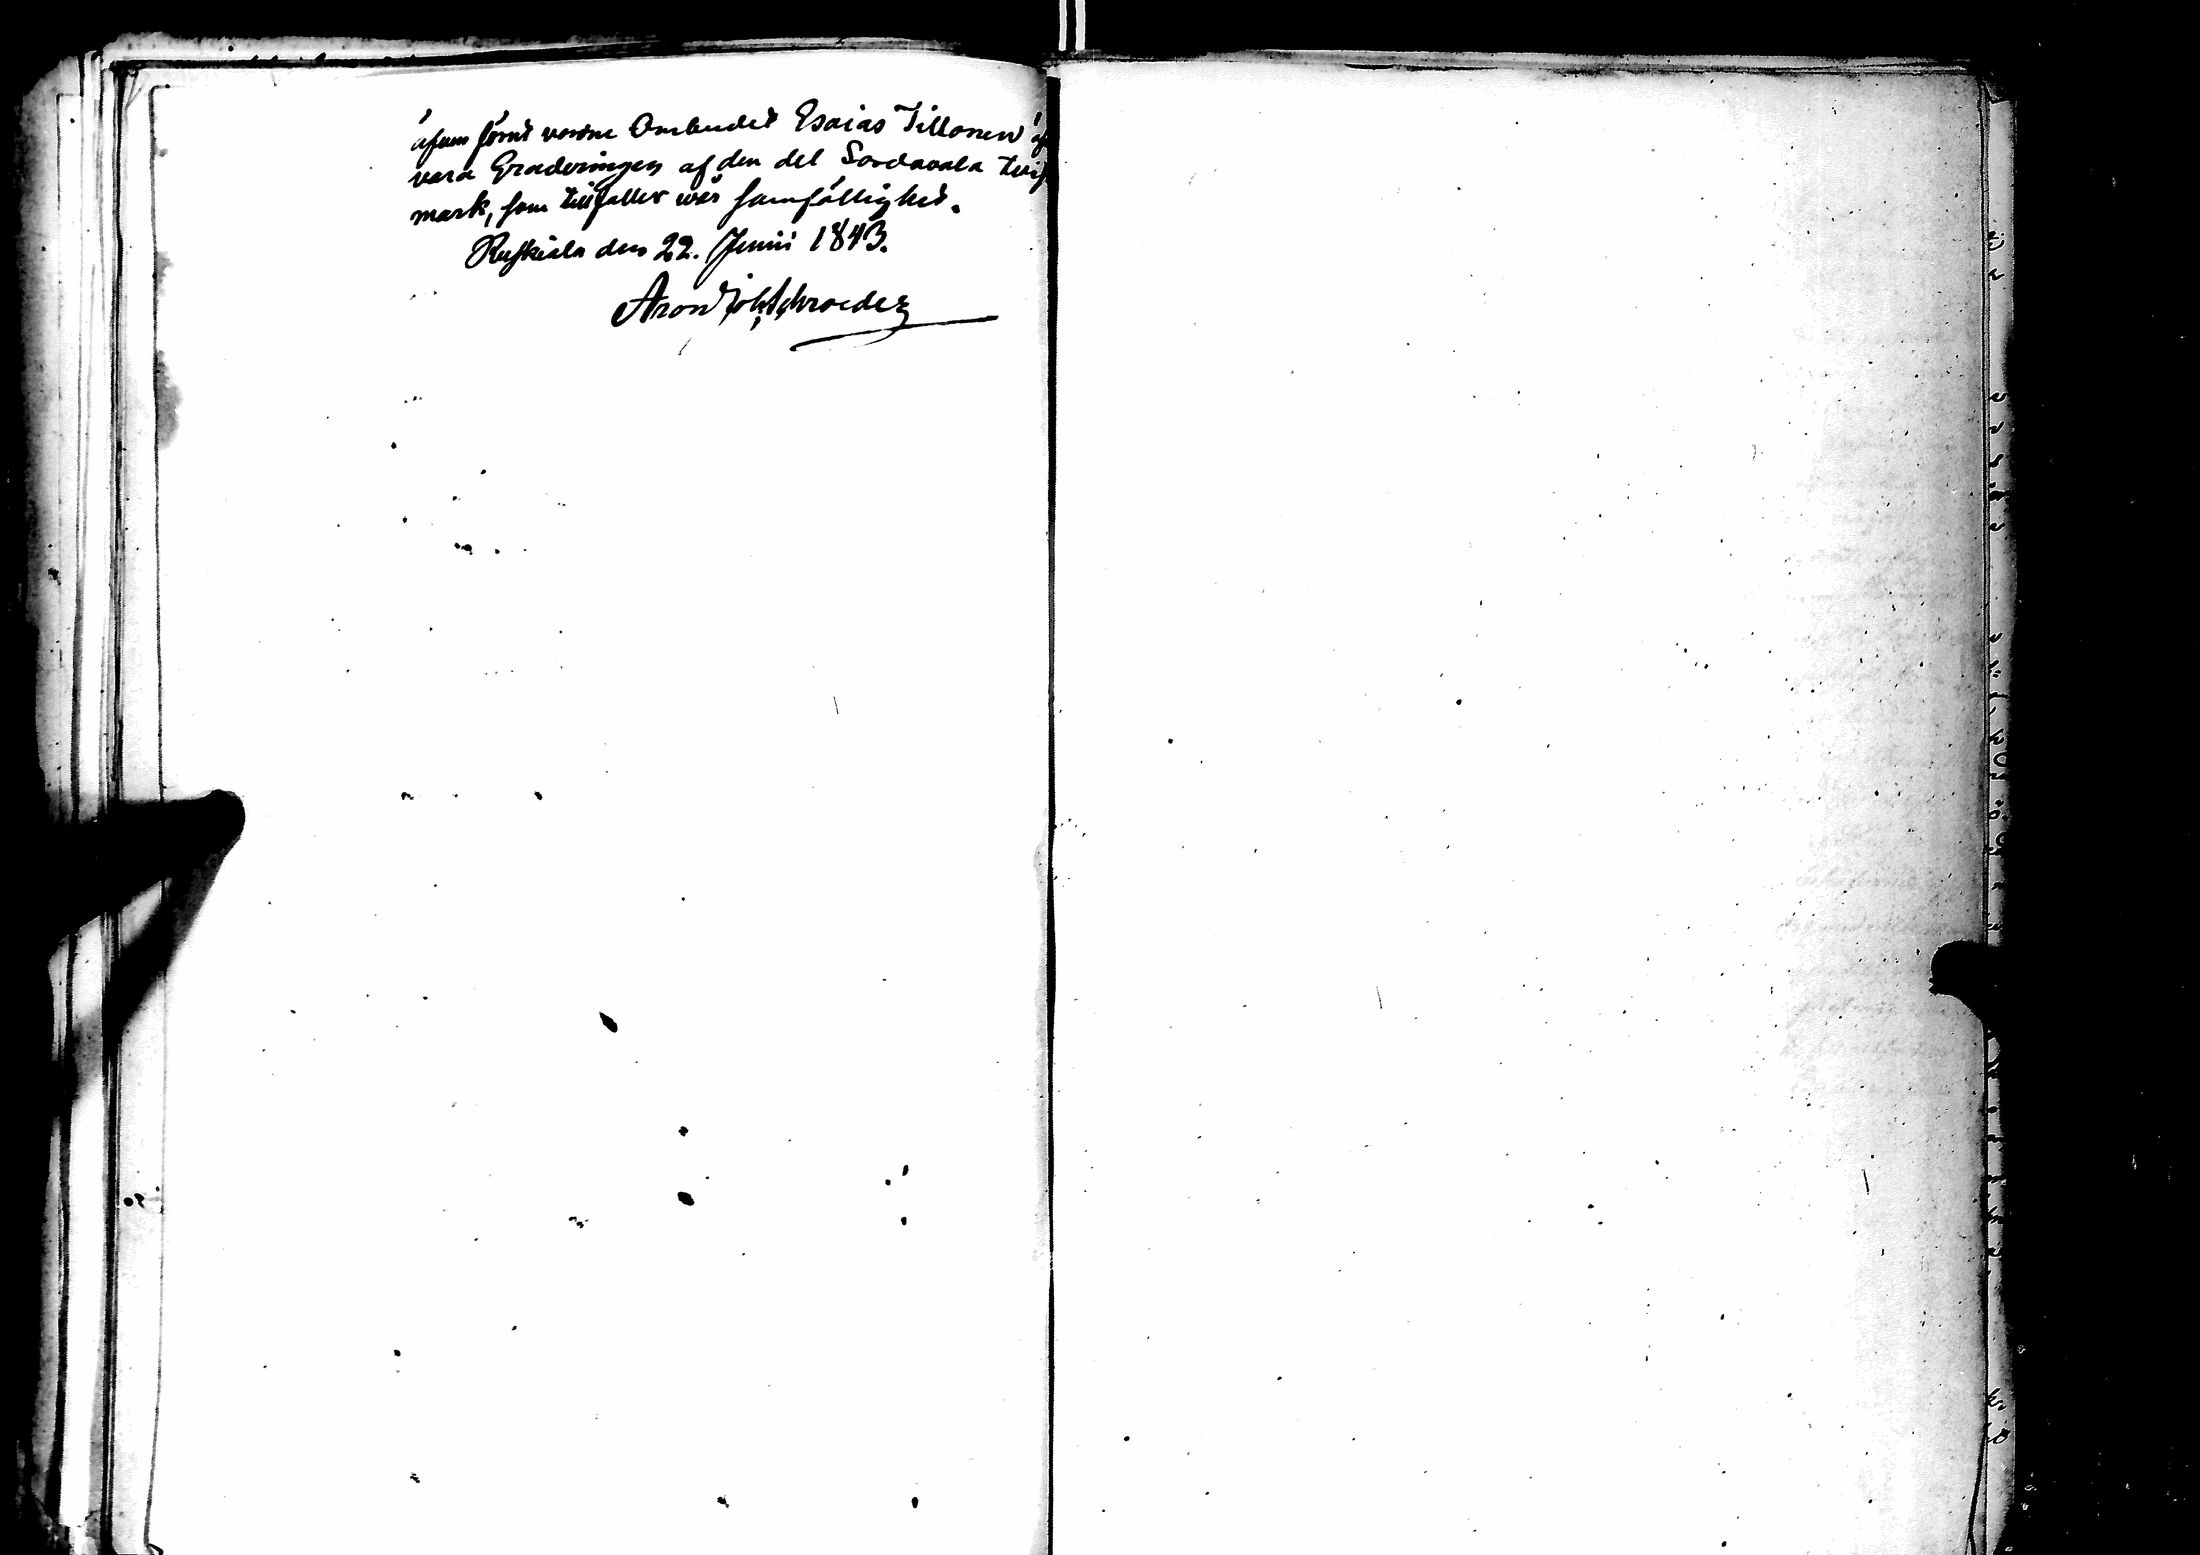 äfven förut vordne Ombudet Esaias Tillonen
vara Graderingen af den del Sordavala tvist
mark, som tillfaller vår samfällighet.
Ruskiala den 22. Junii 1843.
Aron Joh. Schroeder